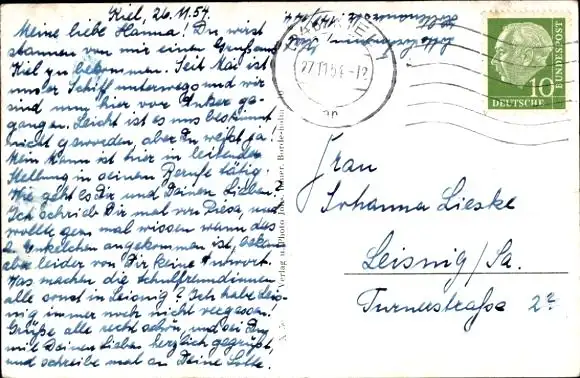 Kiel, 26.11.54.
Meine liebe Hanna! Du wirst
staunen von mir einen Gruß aus
Kiel zu bekommen. Seit Mai ist
unser Schiff unterwegs und wir
sind nun hier vor Anker ge-
gangen. Leicht ist es uns bestimmt
nicht geworden, aber Du weißt ja!
Mein Mann ist hier in leitender
Stellung in seinem Berufe tätig.
Wie geht es Dir und Deinen Lieben?
Ich schrieb Dir mal von Riesa, und
wollte gern mal wissen wann das
2. Enkelchen angekommen ist, bekam
aber leider von Dir keine Antwort.
Was machen die Schulfreundinnen
alle sonst in Leisnig? Ich habe Leis-
nig immer noch nicht vergessen!
Grüße alle recht schön, und sei Du
mit Deinen Lieben herzlich gegrüßt,
und schreibe mal an Deine Lotte.
27.11.54.-12
10
DEUTSCHE
BUNDESPOST
Verlag u. Photo
Bordesholm
Frau
Johanna Lieske
Leisnig/Sa.
Turnerstraße 2